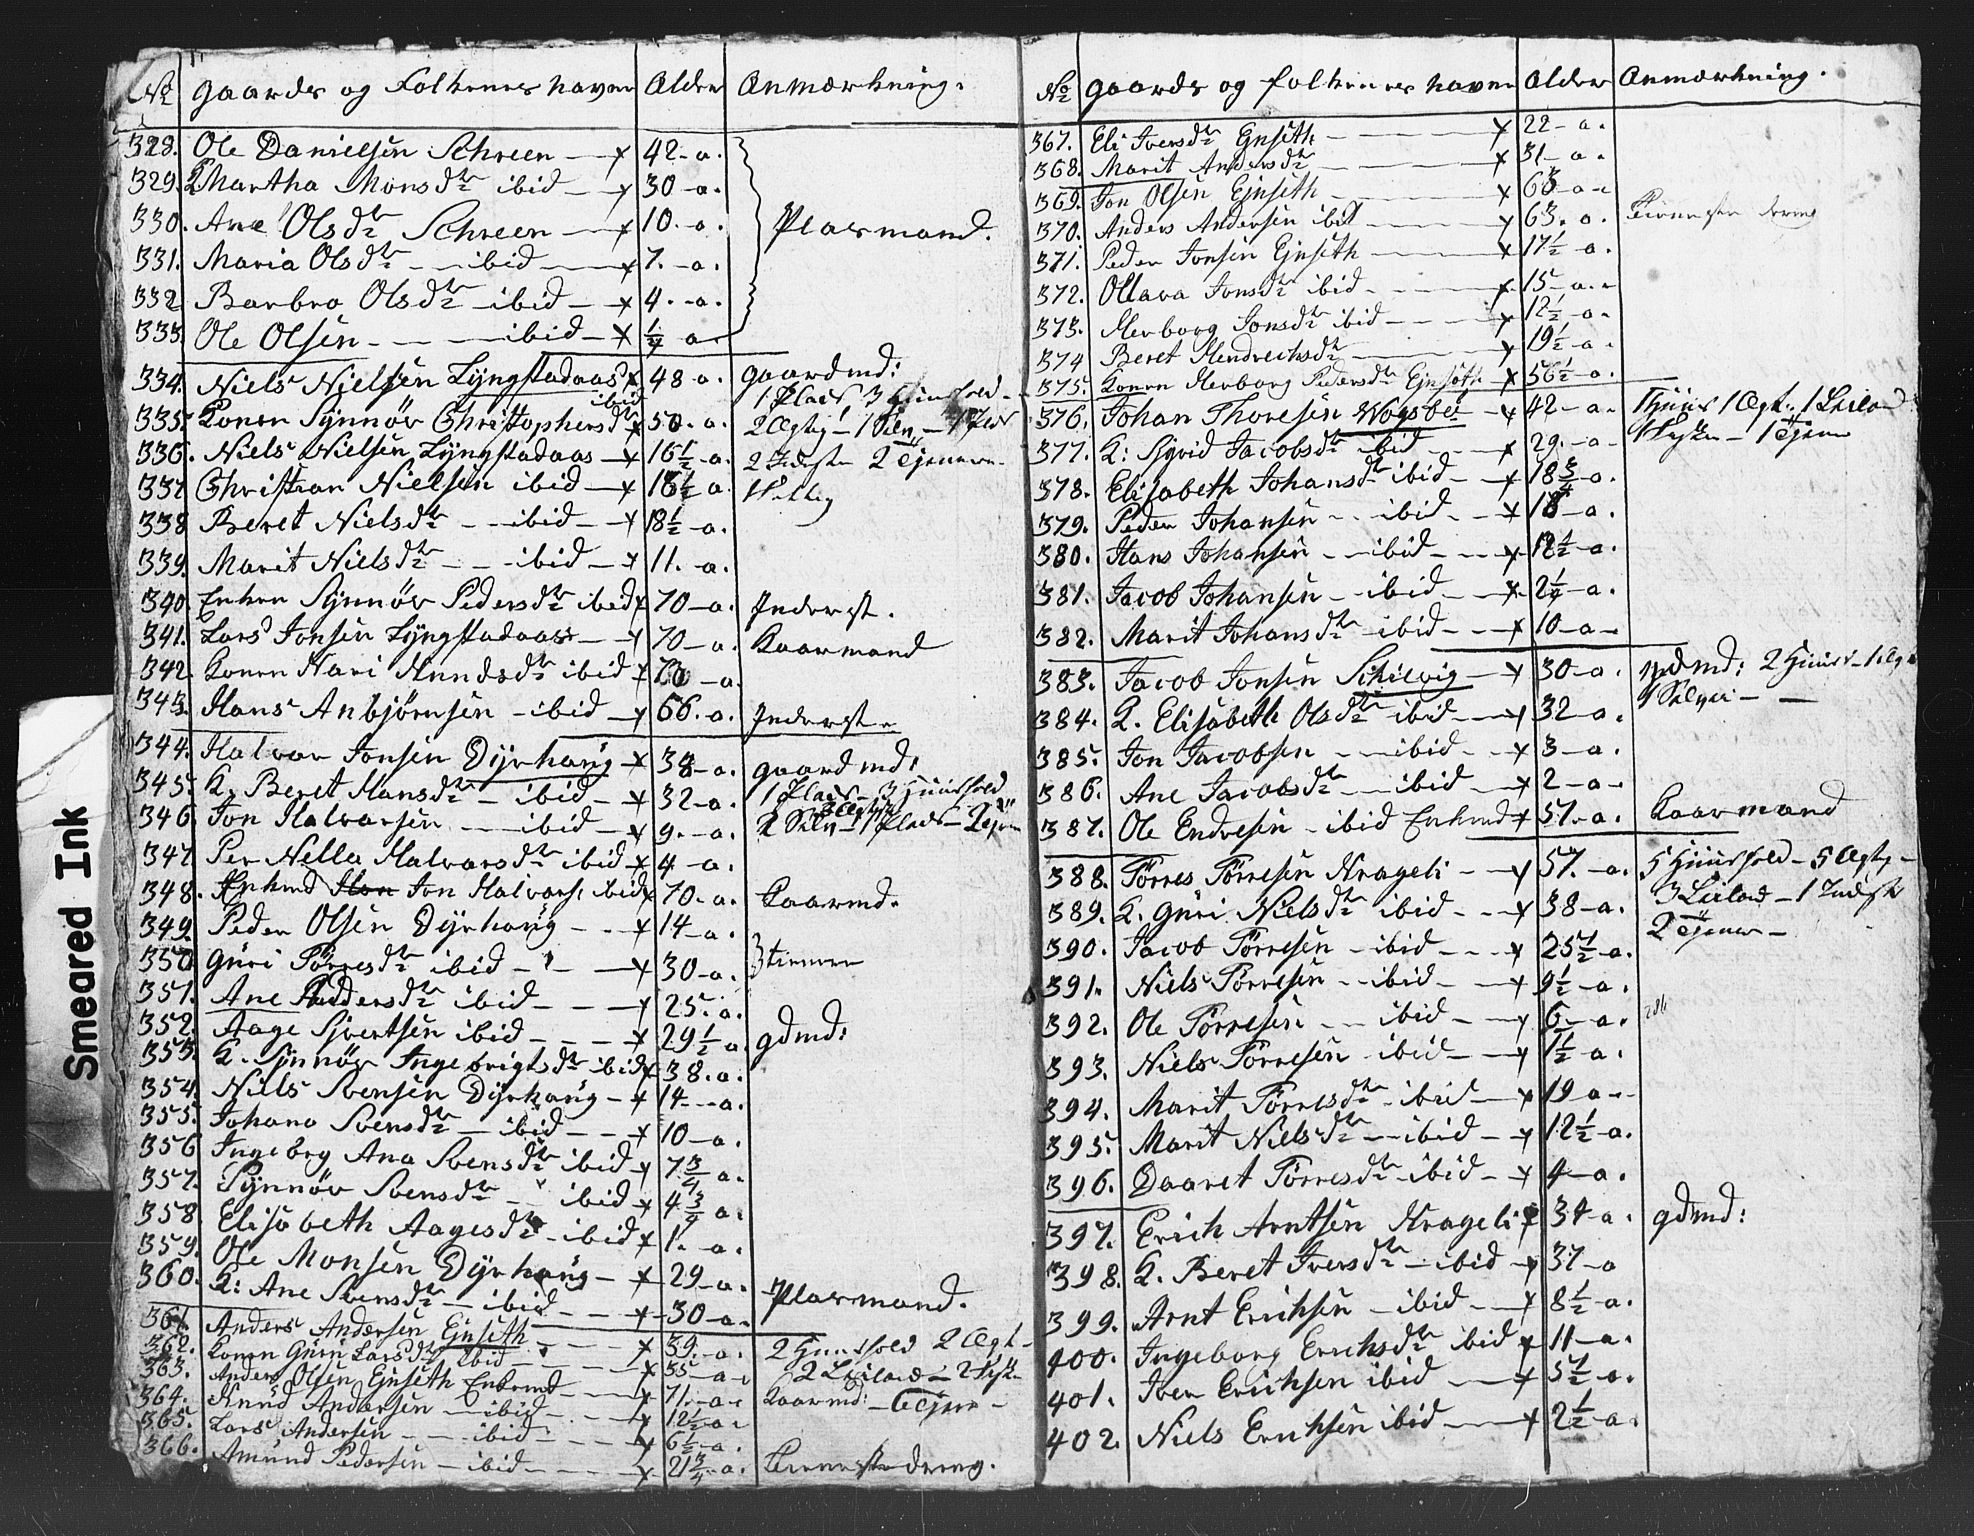 No gaards og Folkenes navne Alder Anmærkning.
328. Ole Danielsen Schreen — x 42 - a.
329. K Martha Monsdtr ibid — x 30 - a.
330. Ane Olsdtr Schreen — x 10. a. Plasmand.
331. Maria Olsdtr - - ibid — x 7. - a.
332 Barbro Olsdtr - ibid - x 4. - a.
333. Ole Olsen - - - ibid - x 1/4 a -
334. Niels Nielsen Lÿngstadaas x 48 a. gaardmd:
ibid 1 Plads 3
335. Konen Sÿnnøv Christophersdtr x 50. a. 2 Ægtq - 1
336. Niels Nielsen Lÿngstadaas - x 16 1/2 a. 2 2 Tjenere -
337 Christian Nielsen ibid — x 1 1/2 a.
338 Beret Nielsdtr - - ibid - x 18 1/2 - a.
339. Marit Nielsdtr - - - ibid - x 11. - a.
340. Enken Sÿnnøv Pedersdtr ibid x 70 - a. Inderst.
341. Lars Jonsen Lÿngstadaas - x 70 - a. Kaarmand
342. Konen Kari Knudsdtr ibid x - a.
343. Hans Anbjørnsen - ibid - x 66. a. Inderst -
344. Halvor Jonsen Dÿrhaug x 38 - a. gaardmd:
345. K. Beret Hansdtr - ibid - x 32 - a. 1 Plads - 3 Huusfold
346. Jon Halvorsen - - ibid - x 9. - a.
347 Per Nella Halvorsdtr ibid x 4 - a.
348. Enkmd Jon Halvors. ibid x 70. - a. Kaarmd.
349. Peder Olsen Dÿrhaug - - x 14 - a.
350 Guri Tørresdtr ibid - - - x 30 - a. 3 tienere
351. Ane Andersdtr ibid - - - x 25. a.
352. Aage Sjvertsen ibid - - - x 29 1/2 a. gdmd:
353. K. Sÿnnøv Ingebrigtsdtr ibid x 38. a.
354. Niels Svensen Dÿrhaug - x 14 - - a.
355. Johana Svensdtr - ibid - - x 10 - a.
356 Ingebrg Ana Svensdtr ibid x 7 3/4 a.
357. Sÿnnøv Svensdtr - - ibid x 4 3/4 a.
358. Elisabeth Aagesdtr - ibid x 1. - a.
359. Ole Monsen Dÿrhaug - x 29 - a.
360. K: Ane Svensdtr - ibid - - x 30 - a. Plasmand.
361. Anders Andersen Ejnseth - - x 39. - a. 2 Huusfold 2 Ægt -
362. Konen Guru Larsdtr ibid - - x 55 - a. 2 Leilænd -
363. Anders Olsen Ejnseth Enkemd - x 71. - a. Kaarmd:
364. Knud Andersen - ibid - - x 12 1/2 a.
365. Lars Andersen - - ibid - - x 6 1/2 - a.
366. Amund Pedersen - ibid - - x 21 3/4 - a. tienestedreng.
No gaards og folkenes navne Alder Anmærkning.
367. Eli Iversdtr Ejnseth - - - x 22 - a.
368. Marit Andersdtr - - - x 31 - a.
369. Jon Olsen Ejnseth - - - x 63 - a -
370. Anders Andersen ibid - - - x 63. a. tienesten dreng
371. Peder Jonsen Ejnseth - - - x 17 1/2 - a.
372. Ollava Jonsdtr ibid - - - x 15 - a. -
373. Herborg Jonsdtr ibid - - - x 12 1/2 - a.
374 Beret Hendrichsdtr - - - x 19 1/2 - a.
375. Konen Herborg Pedersdtr Ejnseth x 56 1/2 - a.
376. Johan Thoresen Wogsbø - x 42 - a. 1 Huus 1 Ægt. 1 Leilænd
377. K: Sigrid Jacobsdtr ibid - - x 29. - a 1 Tjener
378. Elisabeth Johansdtr ibid - x 18 3/4 - a.
379. Peder Johansen - - ibid - - x 1 - a.
380. Hans Johansen - - ibid - - - x 12 1/2 - a.
381. Jacob Johansen - - ibid - - - x 2 1/4 - a.
382. Marit Johansdtr - ibid - - - x 10 - a -
383. Jacob Jonsen Schilvig - x 30 - a. gdmd: 2 Huus - 1 Ægt
384. K. Elisabeth Olsdtr ibid - - x 32 - a.
385. Jon Jacobsen - - - ibid - - x 3 - a.
386. Ane Jacobsdtr - - ibid - - x 2 - a -
387. Ole Endresen - ibid Enkmd x 57 - a. Kaarmand
388. Tørres Tørresen Krageli - - x 57. - a. 5 Huusfold - 5 Ægtq -
389. K. Guri Nielsdtr ibid - - x 38 - a. 3 Leilænd - 1 Inderst
390. Jacob Tørresen - ibid - - - x 25 1/2 - a. 2 Tjener -
391. Niels Tørresen - - ibid - - x 9 1/2 - a.
392. Ole Tørresen. - - ibid - - x 6 - a.
393. Niels Tørresen - ibid - - x 1 1/2 - a.
394. Marit Tørresdtr - ibid - - x 19 a - -
395. Marit Nielsdtr - - ibid - x 12 1/2 - a.
396. Daaret Tørresdtr - ibid - - x 4 - a.
397. Erich Arntsen Krageli x 34 - a. gdmd:
398. K. Beret Iversdtr - ibid - x 37 - a
399. Arnt Erichsen - ibid - - x 8 1/2 - a.
400. Ingeborg Erichsdtr ibid x 11 - a.
401. Iver Erichsen ibid — x 5 1/2 - a.
402. Niels Erichsen ibid — x 2 1/2 - a.
Smeared Ink